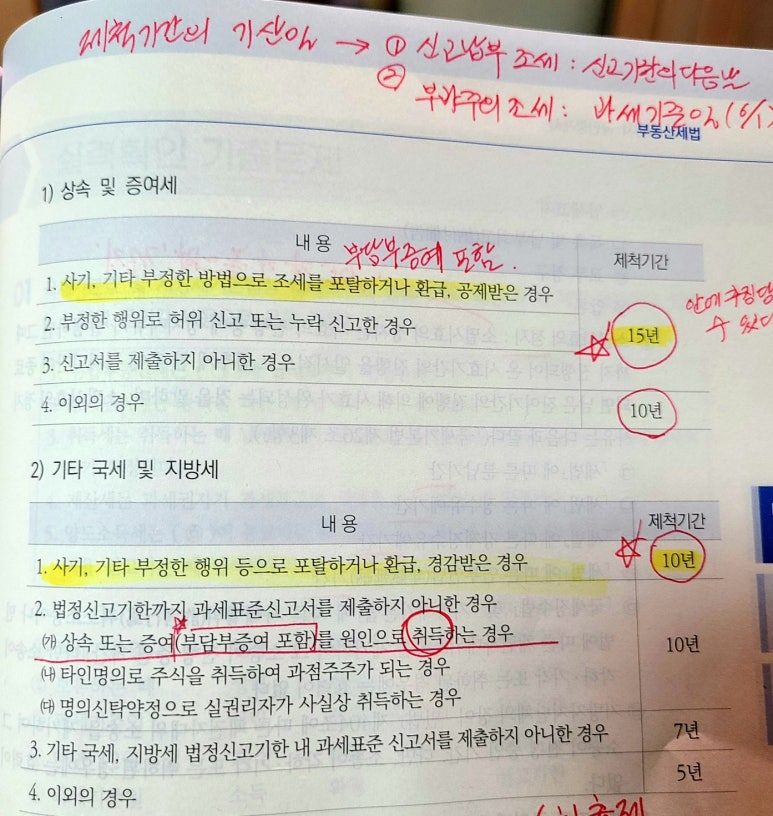 제척기간의 기산일 → ① 신고납부 조세 : 신고기한의 다음날
② 부과주의 조세 : 과세기준일 (6/1)
부동산세법
1) 상속 및 증여세
내 용 제척기간
부담부증여 포함.
1. 사기, 기타 부정한 방법으로 조세를 포탈하거나 환급, 공제받은 경우
2. 부정한 행위로 허위 신고 또는 누락 신고한 경우
15년
안에 추징당
수 있다
3. 신고서를 제출하지 아니한 경우
4. 이외의 경우 10년
2) 기타 국세 및 지방세
내 용 제척기간
1. 사기, 기타 부정한 행위 등으로 포탈하거나 환급, 경감받은 경우 10년
2. 법정신고기한까지 과세표준신고서를 제출하지 아니한 경우
㈎ 상속 또는 증여(부담부증여 포함)를 원인으로 취득하는 경우 10년
㈏ 타인명의로 주식을 취득하여 과점주주가 되는 경우
㈐ 명의신탁약정으로 실권리자가 사실상 취득하는 경우
3. 기타 국세, 지방세 법정신고기한 내 과세표준 신고서를 제출하지 아니한 경우 7년
4. 이외의 경우 5년